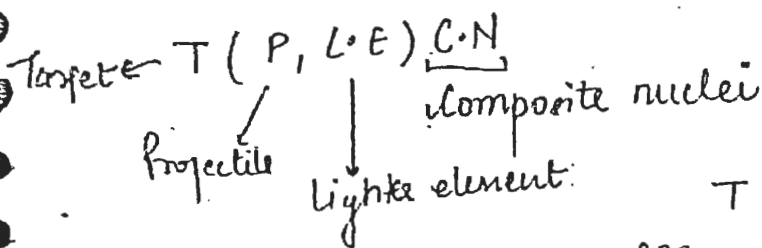 Target ← T ( P, L·E ) C·N
Composite nuclei
Projectile
Lighter element:
T